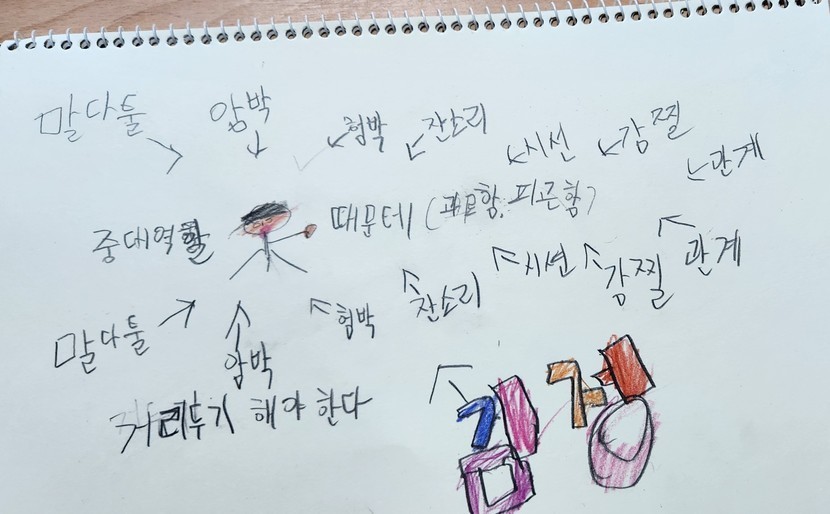 말다툴 압박 협박 잔소리 시선 감찔 관계
중대역할 때문테 ( 피곤함)
말다툴 압박 협박 잔소리 시선 감찔 관계
거리두기 해야 한다
감정